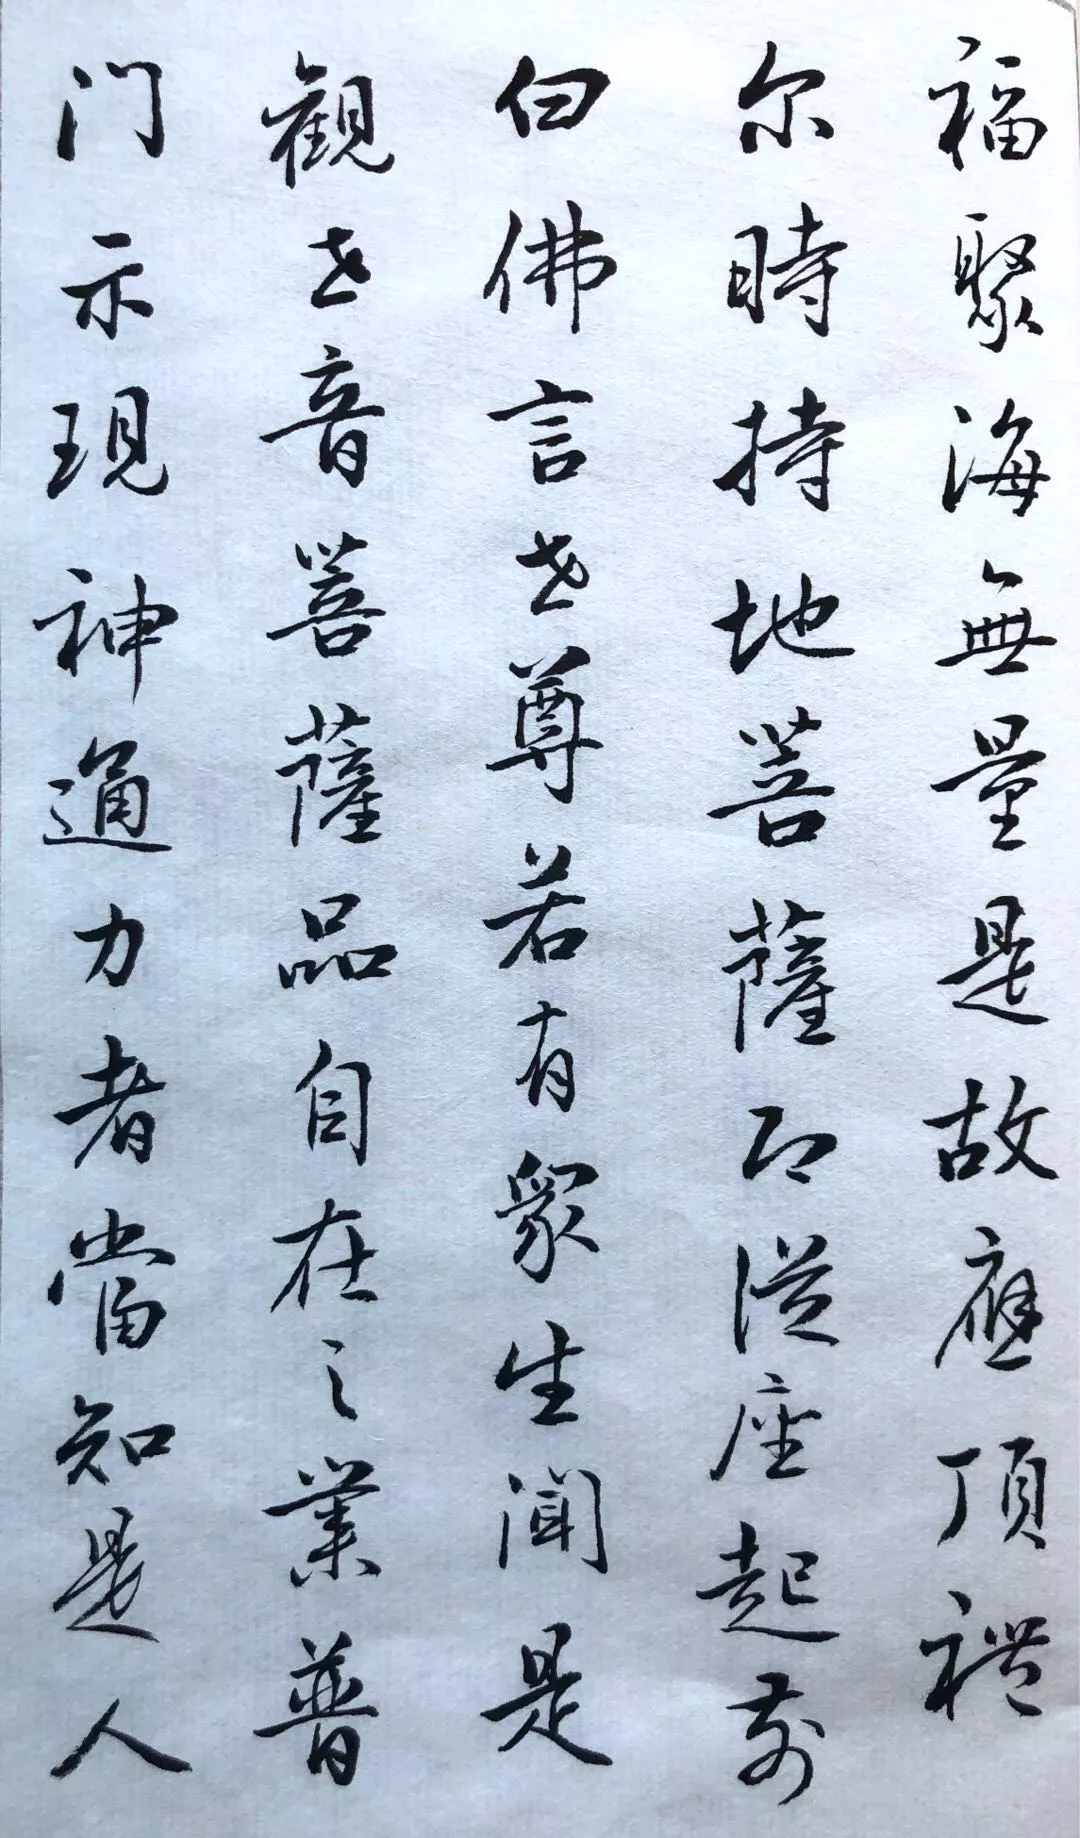 福聚海無量是故應頂禮
尔時持地菩薩即從座起前
白佛言世尊若有眾生聞是
觀世音菩薩品自在之業普
门示現神通力者當知是人